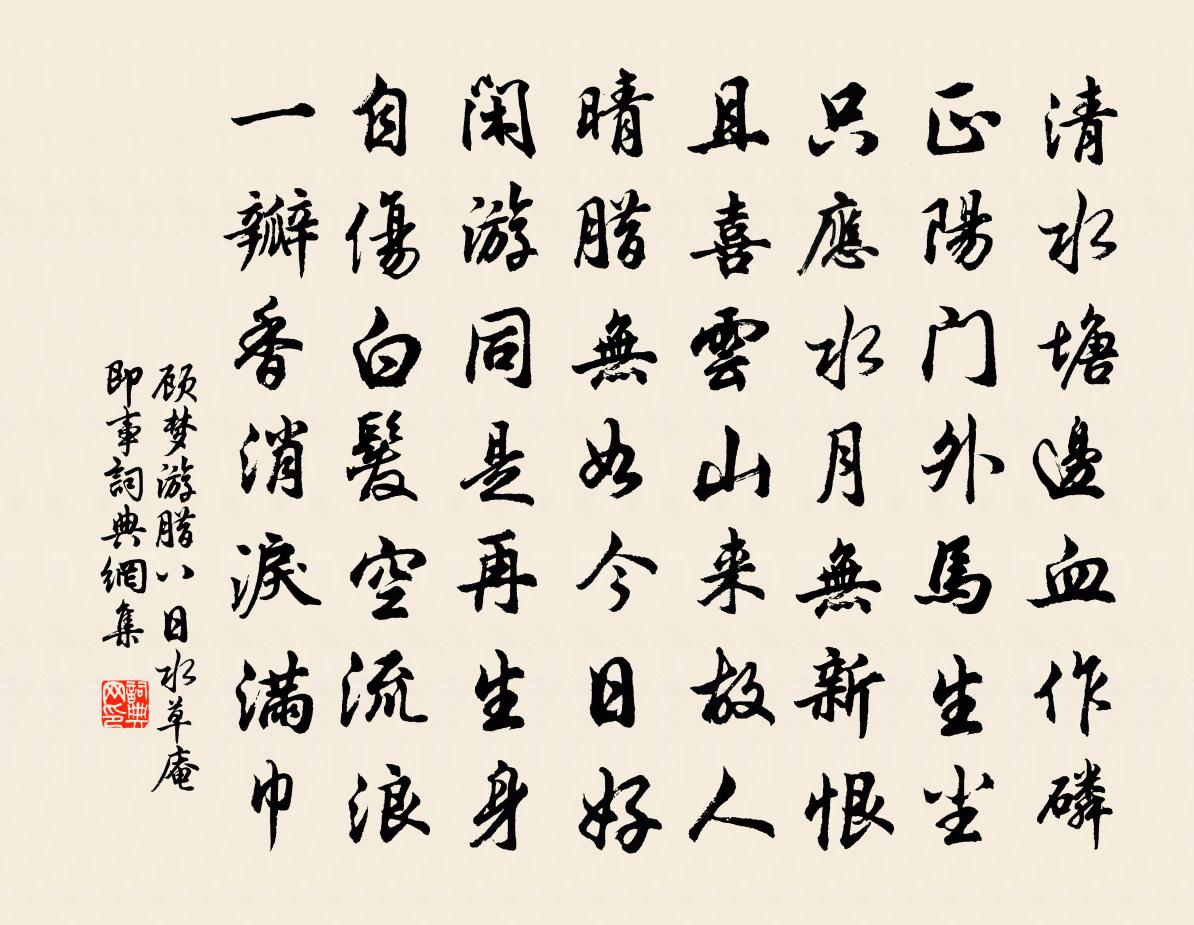 清水塘邊血作磷
正陽门外馬生尘
只應水月無新恨
且喜雲山来故人
晴腊無如今日好
闲游同是再生身
自傷白髮空流浪
一瓣香消淚满巾
顾梦游腊八日水草庵
即事詞典網集
詞典网印